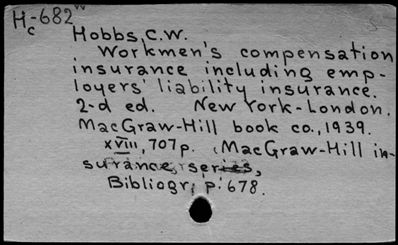 Hc-682w
Hobbs, C.W.
Workmen's compensation
insurance including emp-
loyers' liability insurance.
2-d ed. New York-London.
MacGraw-Hill book co., 1939.
xviii, 707 p. (MacGraw-Hill in-
surance series,
Bibliogr; p. 678.